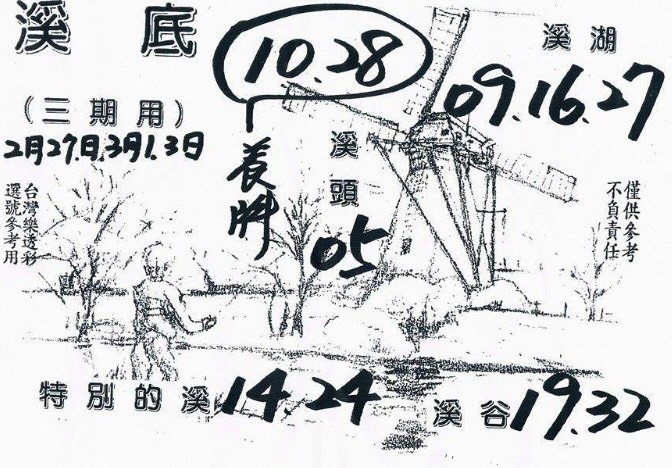 溪底
10.28
溪湖
09.16.27
(三期用)
2月27.日.3月1.3日
養牌
溪頭
05
台灣樂透彩
選號參考用
僅供參考
不負責任
特別的溪 14.24
溪谷 19.32